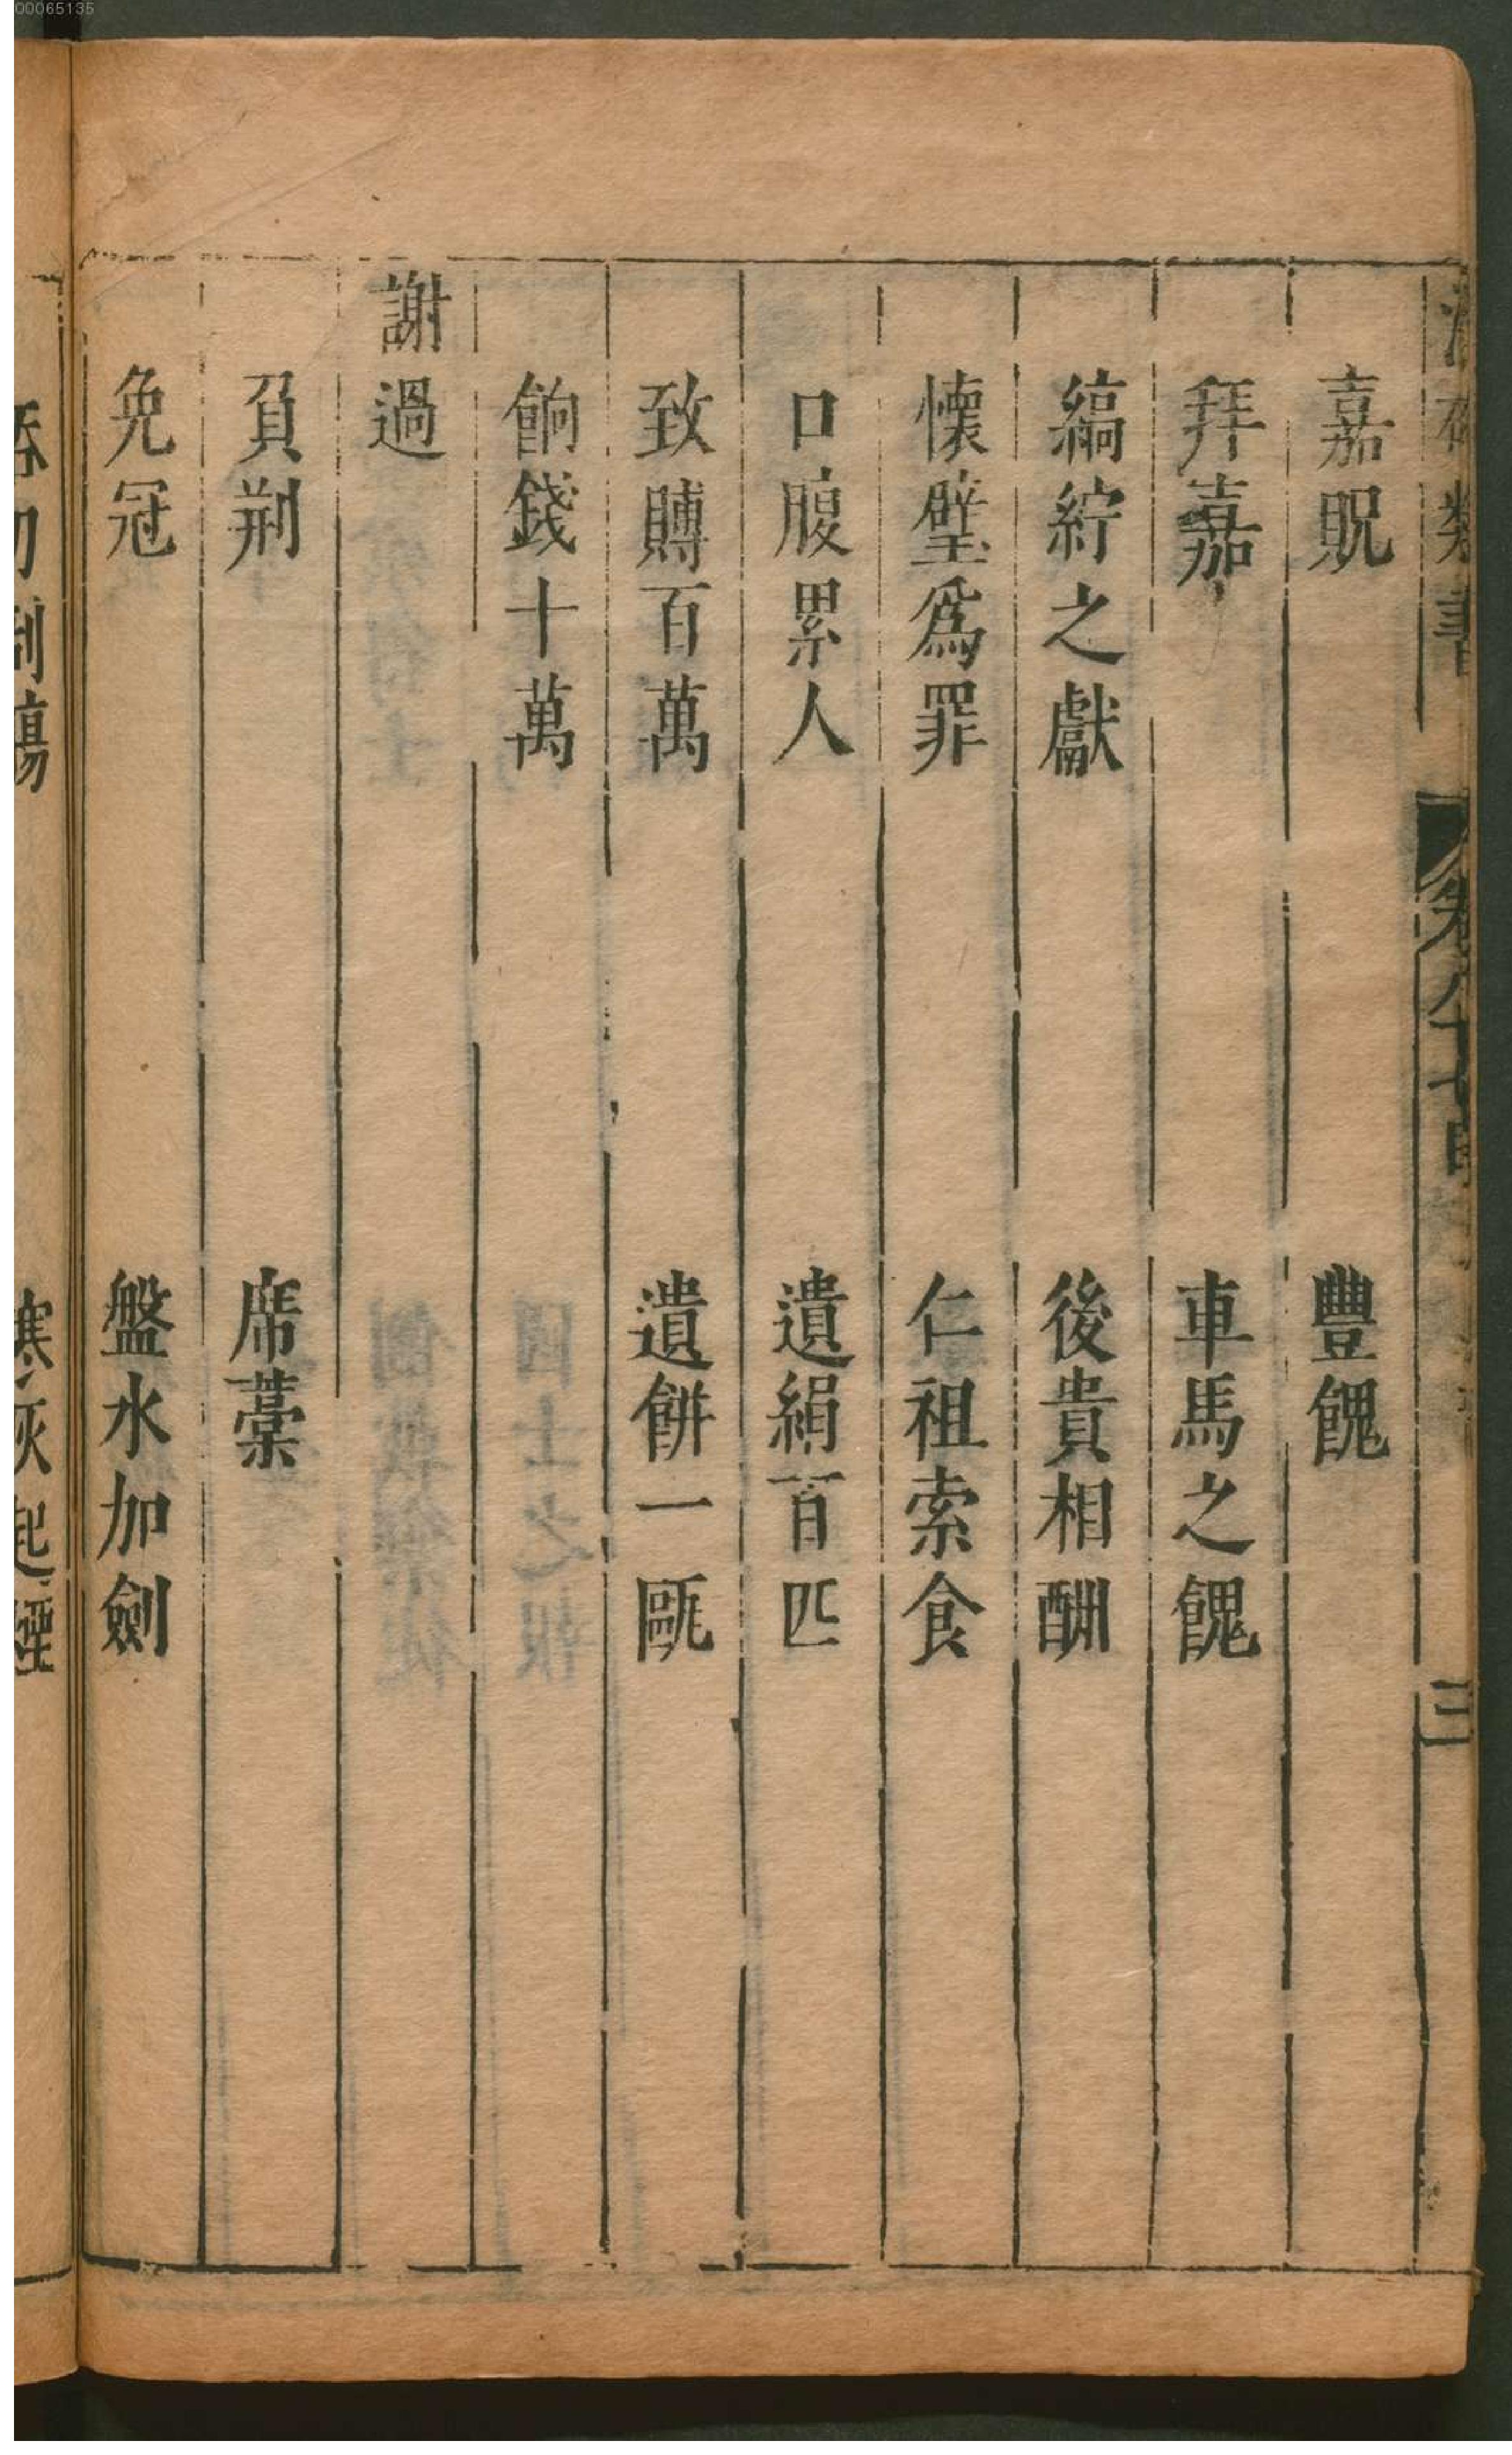 00065135
嘉貺　豐餽
拜嘉　車馬之餽
縞紵之獻　後貴相酬
懷璧爲罪　仁祖索食
口腹累人　遺絹百匹
致賻百萬　遺餅一甌
餉錢十萬
謝過
負荆　席藁
免冠　盤水加劍
寒灰起煙
三